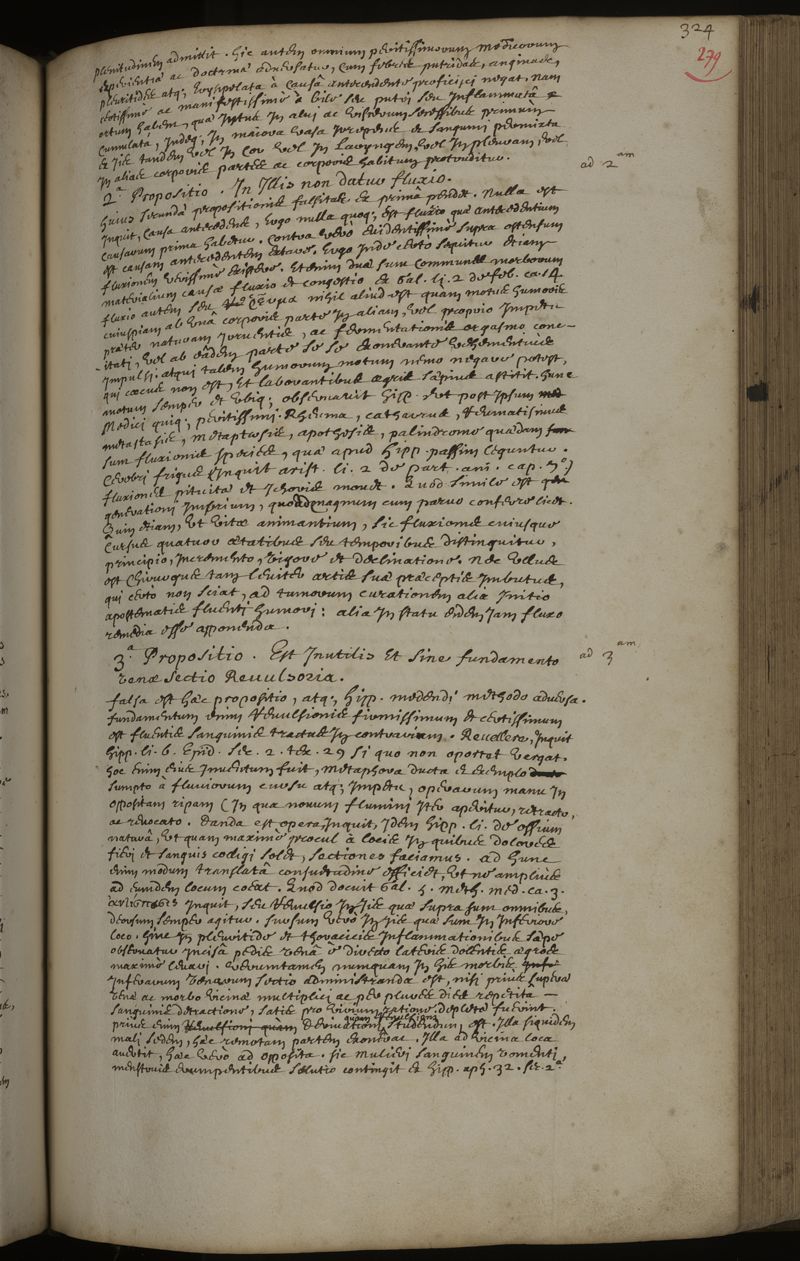 324
279
plenitudinem admittit. Hic autem omnium peritissimorum Medicorum
experientiæ ac doctrinæ aduersatur, cum febres putridas, anginas,
pleuritides atq; erysipelata à causâ antecedente proficisci negat, nam
certissimè ac manifestissimè à bile seu putri seu inflammatâ
ortum habent, quæ intus in alui ac viscerum
cumulata, indeq; in maiora vasa
et sic tandem vel in cor vel in laryngem, vel in pleuram, vel
in alias corporis partes ac corporis habitum protruditur.
2.ª Propositio. In illis non datur fluxio.
ad 2am
Huius secundæ propositionis falsitas ex prima pendet. Nulla est
inquit, causa antecedens, ergo nulla quoq; est fluxio quæ antecedentium
causarum prima habetur. Contra verò euidentissimè supra ostensum
est causam antecedentem extare. Ergo inde certo sequitur etiam
fluxionem verissimè existere. Etenim duæ sunt communes morborum
materialium causæ fluxio et congestio ex Gal. li. 2 de feb. ca. 14.
fluxio autem seu ῥεῦμα nihil aliud est quam motus humoris
cuiuspiam ab unâ corporis parte in aliam, vel proprio impetu
præter naturam irruentis, ac fermentationis orgasmo conc-
-itati, vel ab eâdem parte se se exonerante vehementius
impulsi. atqui talem humorum motum nemo negare potest,
qui cæcus non est, et laborantibus ægris sæpius astitit. Hunc
motum semper et ubiq; obseruauit Hipp. et post ipsum
Medici quiq; peritissimi. Rheuma, catharrus, reumatismus
metastasis, metaptosis, apothesis, palindrome quædam
sunt fluxionis species, quæ apud Hipp. passim leguntur.
Cerebri frigus inquit arist. li. 2 de part. ani. cap. 7.
fluxiones pituitæ et ichoris mouet. Quod simile est
generationi imbrium, quoad magnum cum paruo conferre licet.
Quin etiam, ut vitæ animantium, sic fluxionis cuiusque
cursus quatuor ætatibus seu temporibus distinguitur,
principio, incremento, vigore et declinatione. Nec ullus
est chirurgus tam leuiter artis suæ præceptis imbutus,
qui certo non sciat, ad tumorum curationem alia initio
apostematis fluenti humori: alia in statu eidem iam fluxo
remedia esse apponenda.
3.ª Propositio. Est inutilis et sine fundamento
venæ sectio Reuulsoria.
ad 3am
falsa est hæc propositio, atq; Hipp. medendi methodo aduersa.
fundamentum enim reuulsionis firmissimum et certissimum
est fluentis sanguinis tractus in contrarium. Reuellere, inquit
Hipp. li. 6. Epid. sec. 2. tex. 29 si quo non oportet vergat.
hoc enim eius inuentum fuit, metaphora ducta et exemplo
sumpto à fluuiorum cursu atq; impetu, operarum manu in
oppositam ripam (in qua nouum flumini iter aperitur, retracto,
ac reuocato. Danda est opera, inquit, idem Hipp. li. de ossium
natura, ut quam maximè procul à locis in quibus dolores
fieri et sanguis colligi solet, sectiones faciamus. ad hunc
enim modum translatâ consuetudine efficiet, ut ne amplius
ad eundem locum coeat. Quod docuit Gal. 5. meth. med. ca. 3.
ἀντίσπασις inquit, seu reuulsio in iis quæ supra sunt omnibus,
deorsum semper agitur. sursum verò in iis quæ sunt in inferiore
loco. hinc in pleuritide et thoracicis inflammationibus sæpe
obseruatur incisâ pedis venâ è directo lateris dolentis ægros
maximè leuari. Verumtamen nunquam in his morbis
inferiorum venarum sectio administranda est, nisi prius superæ
venæ ac morbo vicinæ multiplici ac per plures dies repetita —
sanguinis detractione, satis pro virium ratione depleta fuerint.
prius enim deriuationi quam reuulsioni studendum est. Illa siquidem
mali sedem, hæc remotam partem exonerat. Illa ad vicina loca
auertit, hæc vero ad opposita. sic mulieri sanguinem vomenti,
menstruis erumpentibus solutio contingit ex Hipp. aph. 32. sec. 2ª